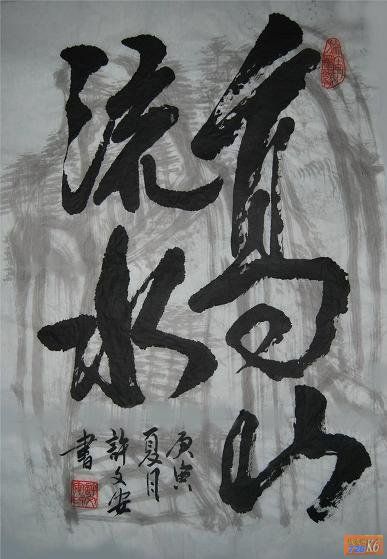 高山
流水
庚寅
夏月
許文安
書